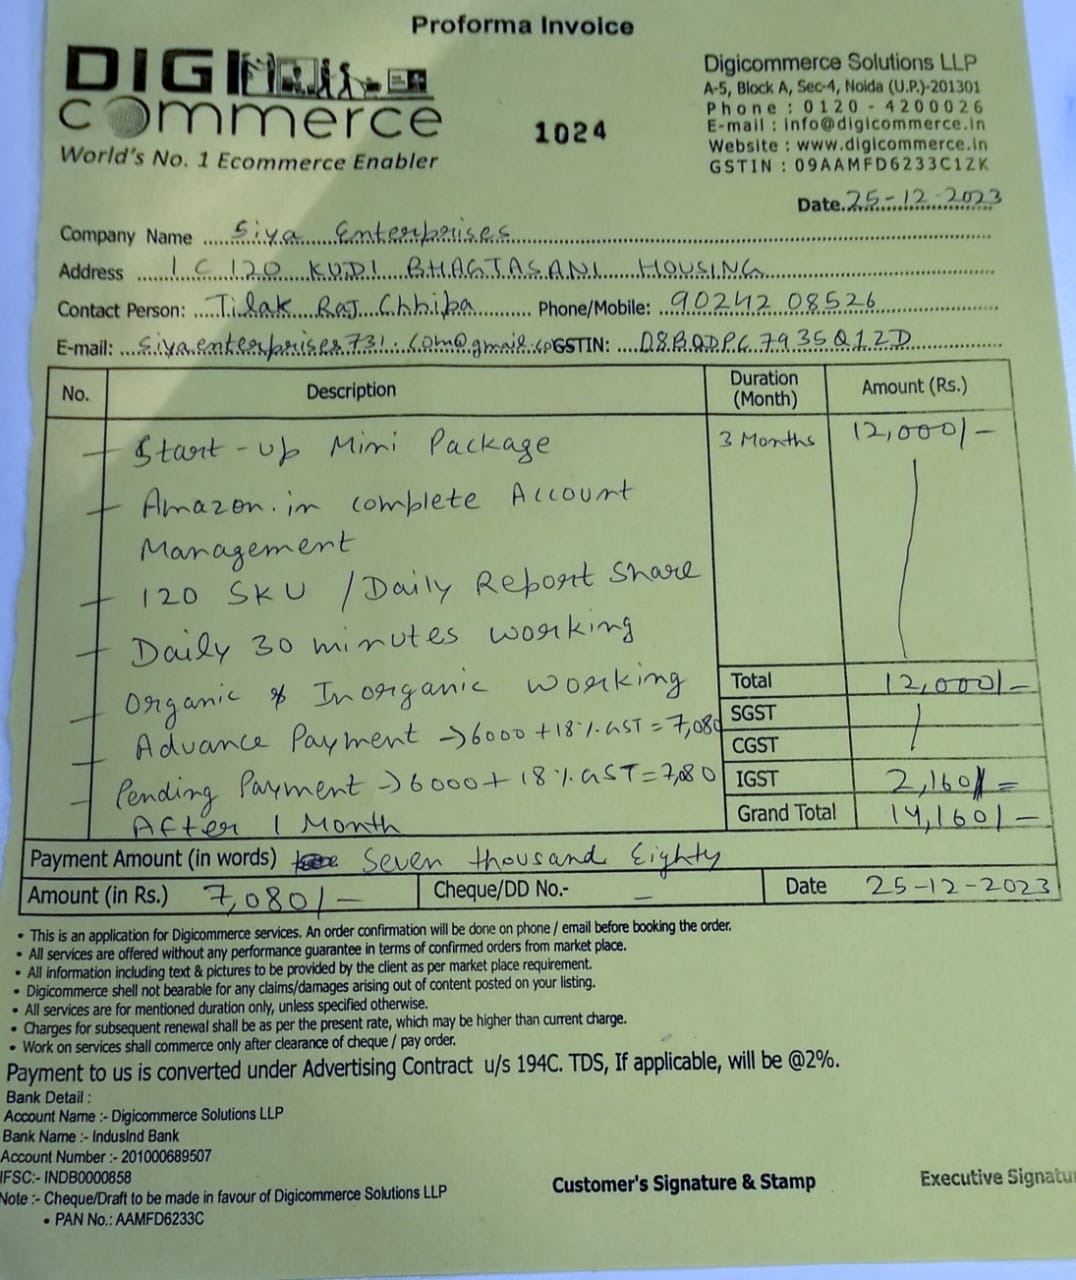 Proforma Invoice
DIGI
commerce
World's No. 1 Ecommerce Enabler
1024
Digicommerce Solutions LLP
A-5, Block A, Sec-4, Noida (U.P.)-201301
Phone : 0120 - 4200026
E-mail : info@digicommerce.in
Website : www.digicommerce.in
GSTIN : 09AAMFD6233C1ZK
Date. 25-12-2023
Company Name Siya Enterprises
Address 1 C 120 KUDI BHAGTASANI HOUSING
Contact Person: Tilak Raj Chhipa Phone/Mobile: 90242 08526
E-mail: siya.enterprises731.com@gmail.co GSTIN: 08BQDPC7935Q1ZD
No. Description Duration (Month) Amount (Rs.)
Start-up Mini Package 3 Months 12,000/-
Amazon.in complete Account
Management
120 SKU / Daily Report Share
Daily 30 minutes working
Organic & Inorganic working
Total 12,000/-
SGST
Advance Payment → 6000 + 18% GST = 7,080
CGST
Pending Payment → 6000 + 18% GST = 7,080
IGST 2,160/=
After 1 Month
Grand Total 14,160/-
Payment Amount (in words) Seven thousand Eighty
Amount (in Rs.) 7,080/- Cheque/DD No.- – Date 25-12-2023
• This is an application for Digicommerce services. An order confirmation will be done on phone / email before booking the order.
• All services are offered without any performance guarantee in terms of confirmed orders from market place.
• All information including text & pictures to be provided by the client as per market place requirement.
• Digicommerce shell not bearable for any claims/damages arising out of content posted on your listing.
• All services are for mentioned duration only, unless specified otherwise.
• Charges for subsequent renewal shall be as per the present rate, which may be higher than current charge.
• Work on services shall commerce only after clearance of cheque / pay order.
Payment to us is converted under Advertising Contract u/s 194C. TDS, If applicable, will be @2%.
Bank Detail :
Account Name :- Digicommerce Solutions LLP
Bank Name :- IndusInd Bank
Account Number :- 201000689507
IFSC:- INDB0000858
Note :- Cheque/Draft to be made in favour of Digicommerce Solutions LLP
• PAN No.: AAMFD6233C
Customer's Signature & Stamp
Executive Signatu